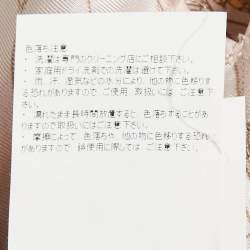 色落ち注意
・ 洗濯は専門のクリーニング店にご相談下さい。
・ 家庭用ドライ洗剤での洗濯は避けて下さい。
・ 雨、汗、湿気などの水分により、他の物に色移りす
る恐れがありますので、ご使用、取扱いには、ご注意下
さい。
・ 濡れたまま長時間放置すると、色落ちすることがあり
ますので取扱いにはご注意下さい。
・ 摩擦によって、色落ちや、他の物に色移りする恐れ
がありますので、御使用に際しては、ご注意下さい。